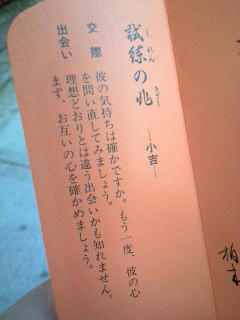 試練の兆
しれん
きざし
―小吉―
交際
彼の気持ちは確かですか。もう一度、彼の心
を問い直してみましょう。
出会い
理想どおりとは違う出会いかも知れません。
まず、お互いの心を確かめましょう。